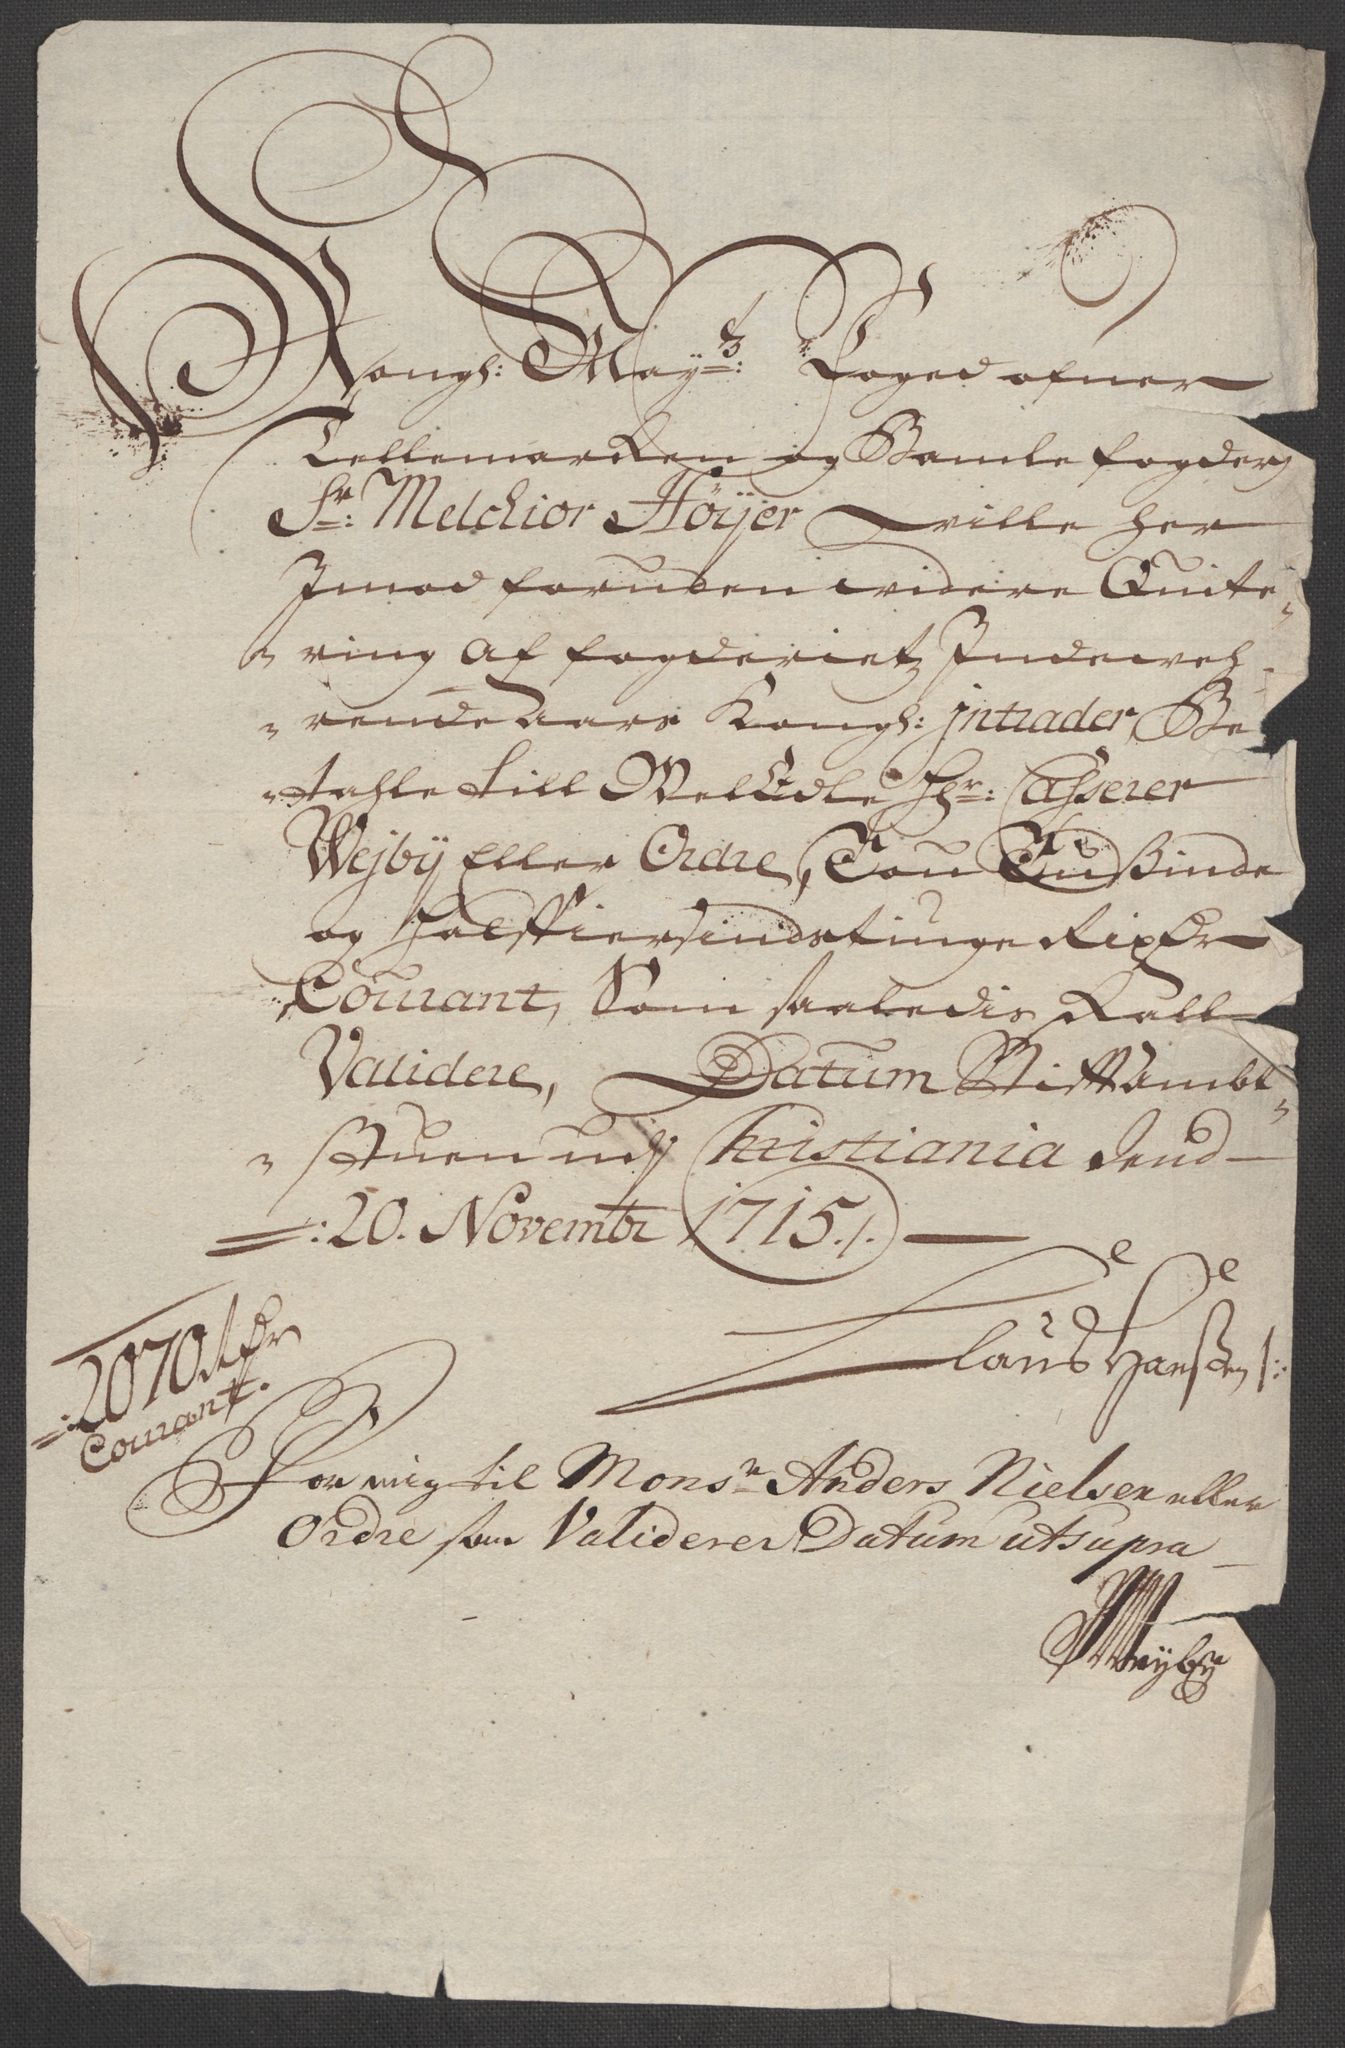 Kongl: May.ts: Foged ofuer
Tellemarken og Bamle fogderj
Sr: Melchior Höyer, wille her
Jmod foruden widere Quite„
„ring af fogderietz Indeweh
„rende aars Kongl: Jntrader, Be
„tahle till WelEdle Hr: Casserer
Wejby Eller Ordre, Tou Tußinde
og halffiersindstiuge RixDr
Courant, Som saaledis skall
Validere, Datum Stiftambt„
„stuen udj Christiania dend
20. Novembr 1715./.
Claus Hanßen /:
2070 RDr
Courant.
For mig til Monsr Anders Nielsen eller
Ordre som Validerer Datum utsupra
Weyby